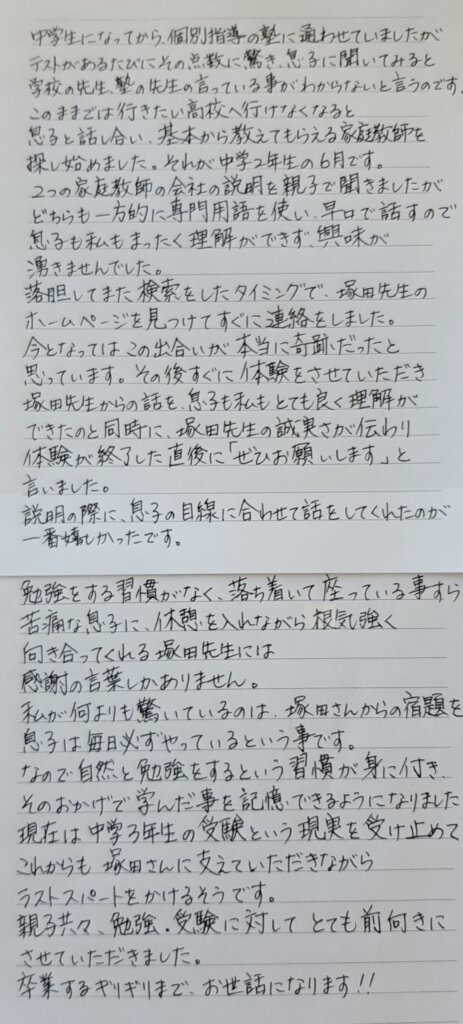 中学生になってから、個別指導の塾に通わせていましたが
テストがあるたびにその点数に驚き、息子に聞いてみると
学校の先生、塾の先生の言っている事がわからないと言うのです。
このままでは行きたい高校へ行けなくなると
息子と話し合い、基本から教えてもらえる家庭教師を
探し始めました。それが中学2年生の6月です。
2つの家庭教師の会社の説明を親子で聞きましたが
どちらも一方的に専門用語を使い、早口で話すので
息子も私もまったく理解ができず、興味が
湧きませんでした。
落胆してまた検索をしたタイミングで、塚田先生の
ホームページを見つけてすぐに連絡をしました。
今となってはこの出合いが本当に奇跡だったと
思っています。その後すぐに体験をさせていただき
塚田先生からの話を、息子も私もとても良く理解が
できたのと同時に、塚田先生の誠実さが伝わり
体験が終了した直後に「ぜひお願いします」と
言いました。
説明の際に、息子の目線に合わせて話をしてくれたのが
一番嬉しかったです。
勉強をする習慣がなく、落ち着いて座っている事すら
苦痛な息子に、休憩を入れながら根気強く
向き合ってくれる塚田先生には
感謝の言葉しかありません。
私が何よりも驚いているのは、塚田さんからの宿題を
息子は毎日必ずやっているという事です。
なので自然と勉強をするという習慣が身に付き、
そのおかげで学んだ事を記憶できるようになりました
現在は中学3年生の受験という現実を受け止めて
これからも塚田さんに支えていただきながら
ラストスパートをかけるそうです。
親子共々、勉強・受験に対してとても前向きに
させていただきました。
卒業するギリギリまで、お世話になります!!